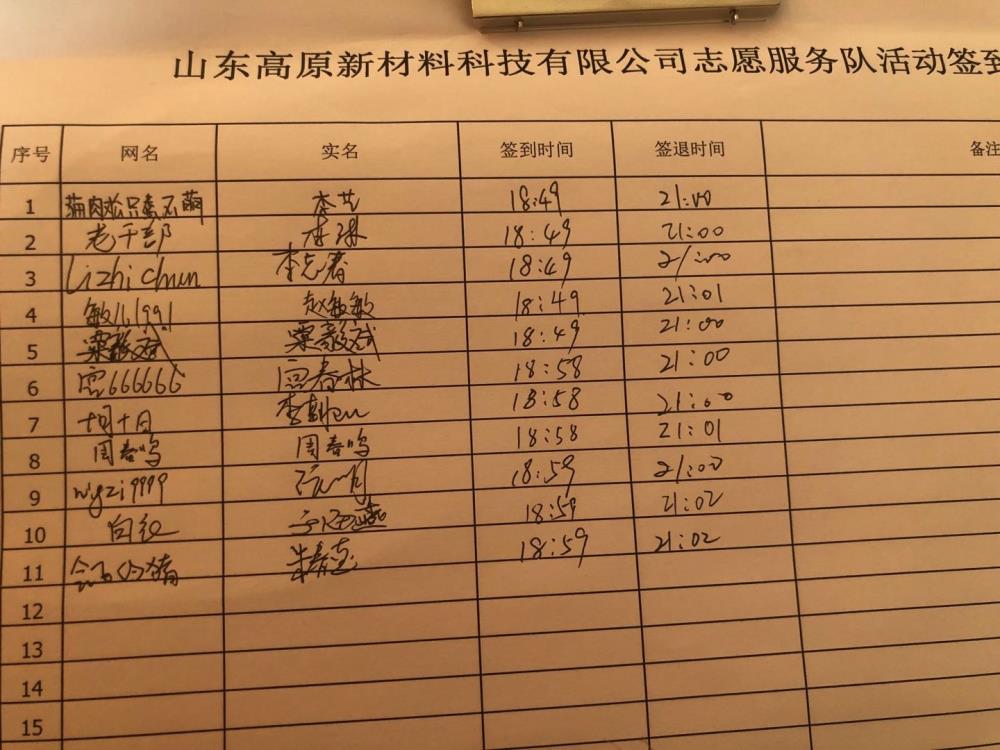 山东高原新材料科技有限公司志愿服务队活动签到
序号 网名 实名 签到时间 签退时间 备注
1 18:49 21:00
2 老干部 李琳 18:49 21:00
3 Lizhichun 李志春 18:49 21:00
4 敏儿1991 赵敏敏 18:49 21:01
5 18:49 21:00
6 666666 春林 18:58 21:00
7 十月十日 李 18:58 21:00
8 周春鸣 周春鸣 18:58 21:01
9 wyzi9999 18:59 21:00
10 18:59 21:02
11 猪 18:59 21:02
12
13
14
15